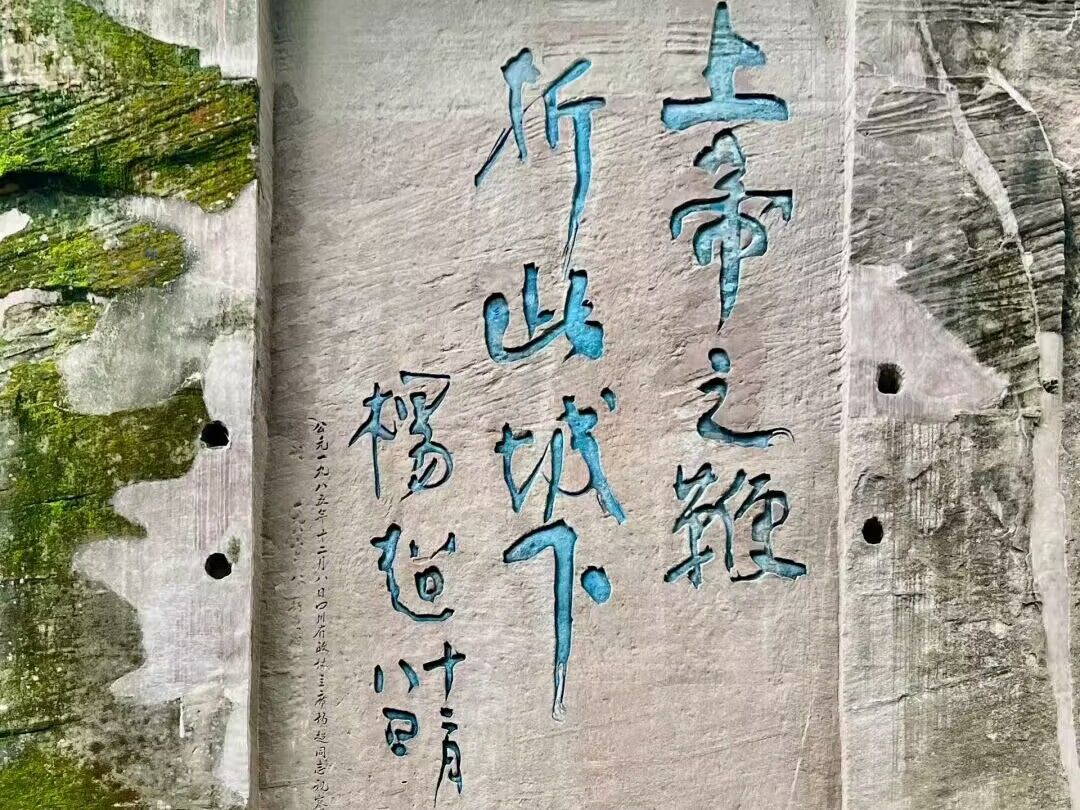 上帝之鞭
折此城下
楊超
十二月
八日
公元一九八五年十二月八日四川省政协主席杨超同志视察